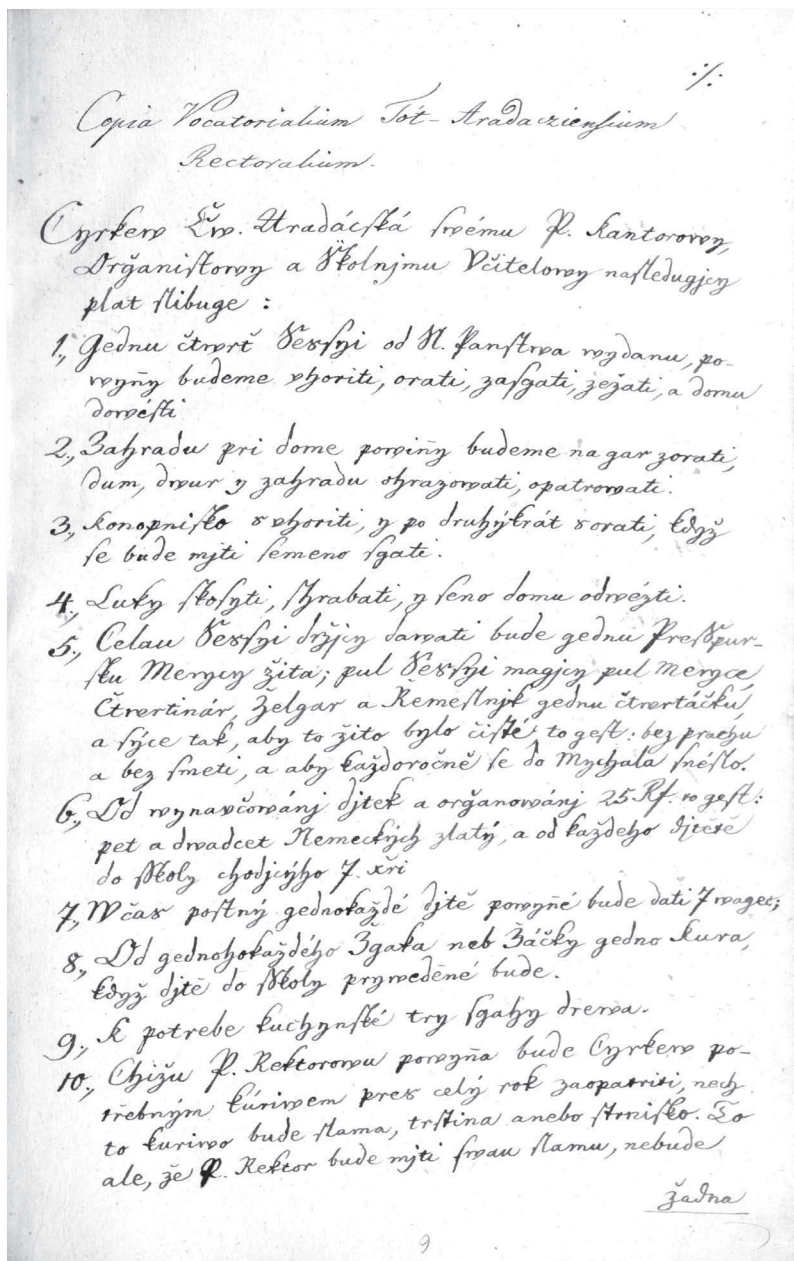 ·/·
Copia Vocatorialium Tót-Aradacziensium
Rectoralium.
Cyrkew Ew. Aradácská swému P. Kantorowy,
Organistowy a Školnjmu Včitelowy nasledugjcy
plat slibuge :
1., Gednu čtwrť Sessyi od Sl. Panstwa wydanu, po-
wyňy budeme vhoriti, orati, zasgati, zežati, a domu
dowésti
2., Zahradu pri dome powiňy budeme na gar zorati,
dum, dwur y zahradu ohrazowati, opatrowati.
3., Konopnisko svhoriti, y po druhýkrát sorati, když
se bude mjti semeno sgati.
4., Luky skosyti, shrabati, y seno domu odwézti.
5., Celau Sessyi držjcy dawati bude gednu Presspur-
sku Merycy žita; pul Sessyi magjcy pul meryce,
Čtvertinár, Želgar a Remeslnjk gednu čtvertáčku,
a sýce tak, aby to žito bylo čisté, to gest: bez prachu
a bez smeti, a aby každoročně se do Mychala snéslo.
6., Od wynavčowánj djtek a organowánj 25 Rf. to gest:
pet a dwadcet Nemeckých zlatý, a od každeho djtěte
do sskoly chodjcýho 7. xři
7., W čas postný gednokaždé djtě powyňé bude dati 7 wagec;
8., Od gednohokaždého Žgaka neb Žáčky gedno Kura,
když djtě do sskoly prywedéné bude.
9., K potrebe kuchynské try sgahy drewa.
10., Chižu P. Rektorowu powyňa bude Cyrkew po-
třebným kúriwem pres celý rok zaopatriti, nech
to kuriwo bude slama, trstina anebo strnisko. To
ale, že P. Rektor bude mjti swau slamu, nebude
žadna
9